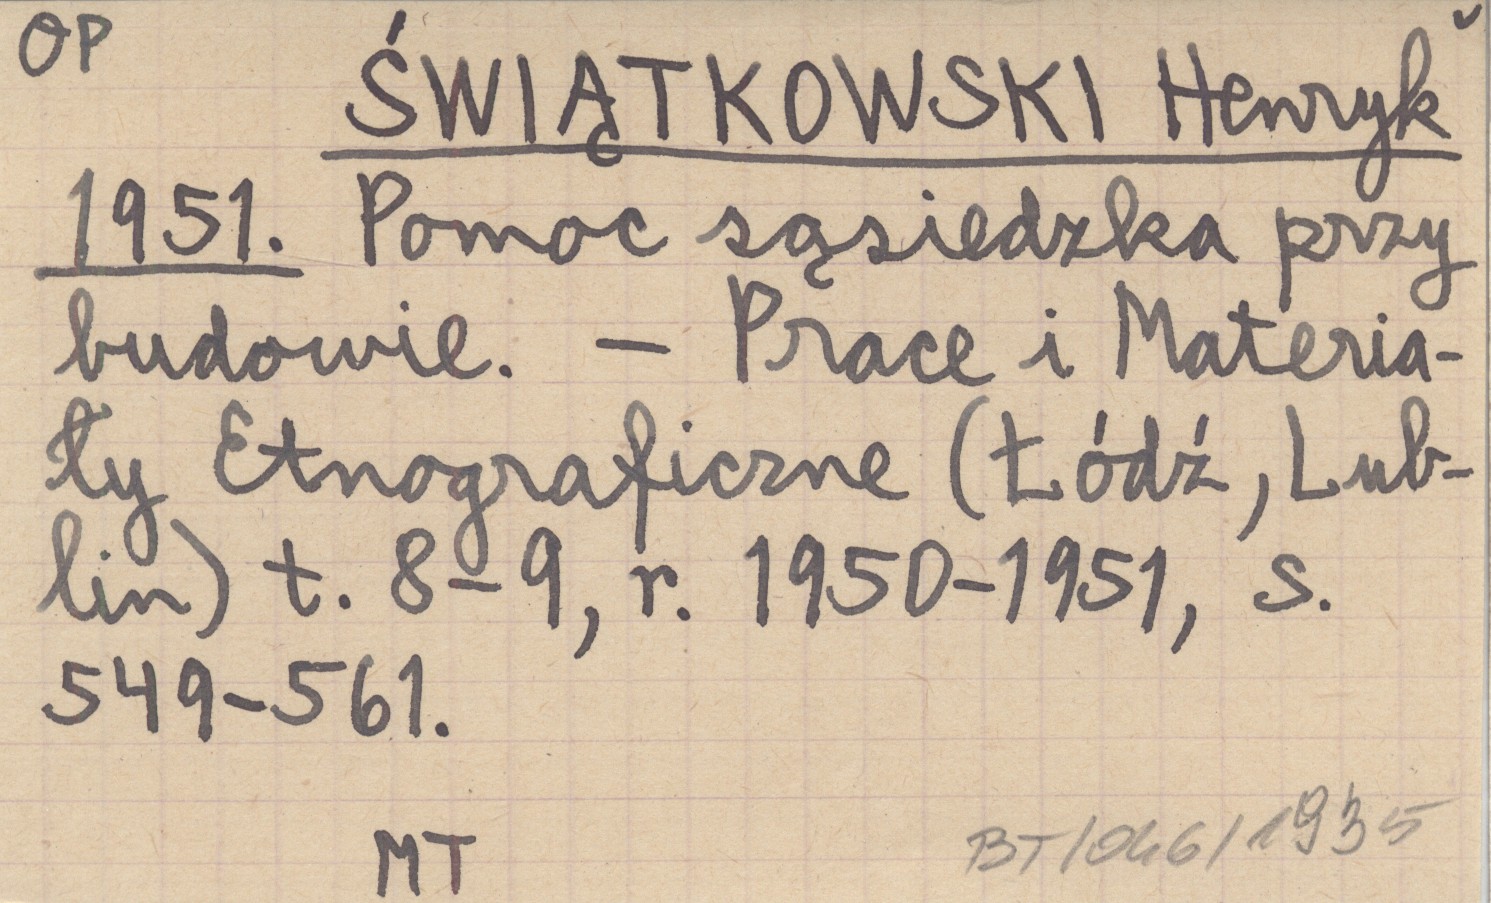 OP
ŚWIĄTKOWSKI Henryk
1951. Pomoc sąsiedzka przy
budowie. – Prace i Materia-
ły Etnograficzne (Łódź, Lub-
lin) t. 8–9, r. 1950–1951, s.
549–561.
MT
BT/046/1935